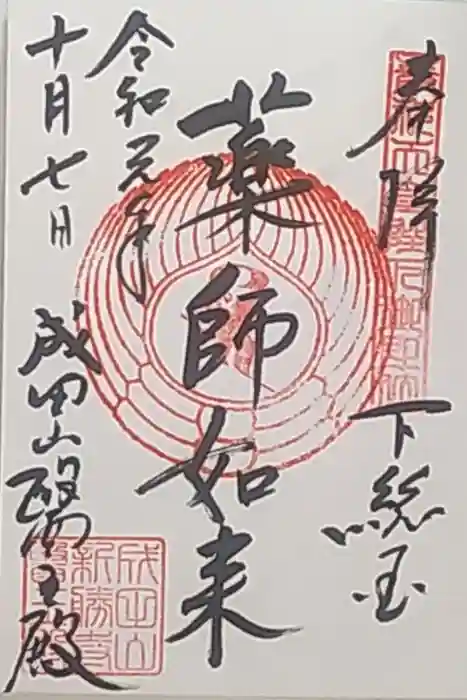 奉拝 下総国
薬師如来
令和元年
十月七日 成田山醫王殿
成田山
新勝寺